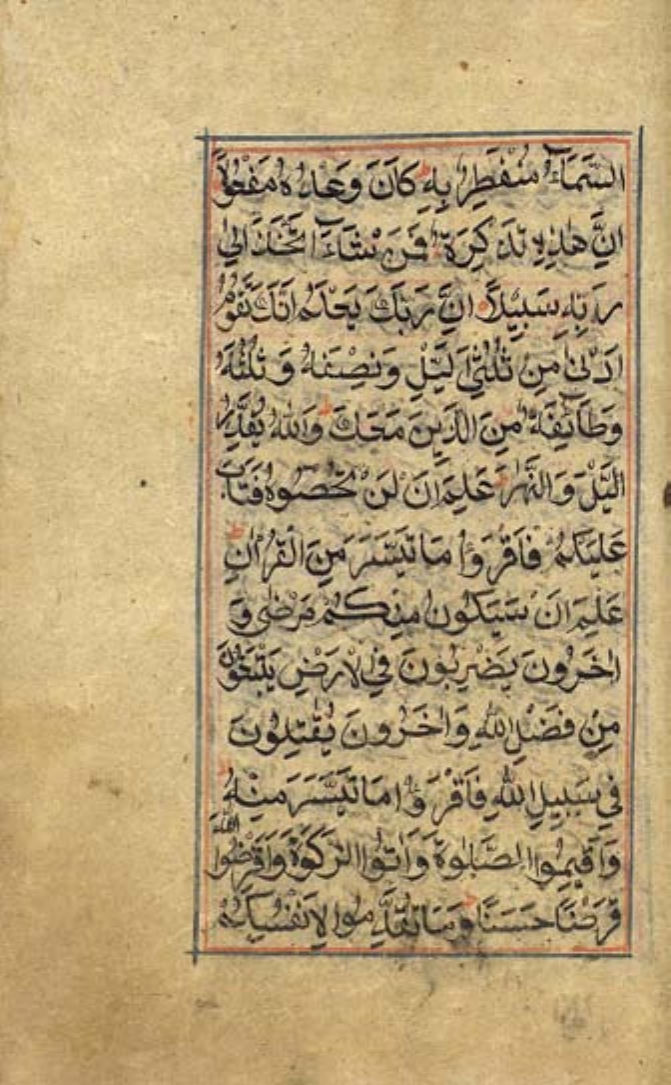 السَّمَاءُ مُنْفَطِرٌ بِهِ كَانَ وَعْدُهُ مَفْعُولًا
اِنَّ هٰذِهِ تَذْكِرَةٌ فَمَنْ شَاءَ اتَّخَذَ اِلٰى
رَبِّهِ سَبِيْلًا اِنَّ رَبَّكَ يَعْلَمُ اَنَّكَ تَقُوْمُ
اَدْنٰى مِنْ ثُلُثَيِ الَّيْلِ وَنِصْفَهُ وَثُلُثَهُ
وَطَائِفَةٌ مِنَ الَّذِيْنَ مَعَكَ وَاللهُ يُقَدِّرُ
الَّيْلَ وَالنَّهَارَ عَلِمَ اَنْ لَنْ تُحْصُوهُ فَتَابَ
عَلَيْكُمْ فَاقْرَؤُا مَا تَيَسَّرَ مِنَ الْقُرْاٰنِ
عَلِمَ اَنْ سَيَكُوْنُ مِنْكُمْ مَرْضٰى وَ
اٰخَرُوْنَ يَضْرِبُوْنَ فِي الْاَرْضِ يَبْتَغُوْنَ
مِنْ فَضْلِ اللهِ وَاٰخَرُوْنَ يُقٰتِلُوْنَ
فِيْ سَبِيْلِ اللهِ فَاقْرَؤُا مَا تَيَسَّرَ مِنْهُ
وَاَقِيْمُوا الصَّلٰوةَ وَاٰتُوا الزَّكٰوةَ وَاَقْرِضُوا اللهَ
قَرْضًا حَسَنًا وَمَا تُقَدِّمُوْا لِاَنْفُسِكُمْ